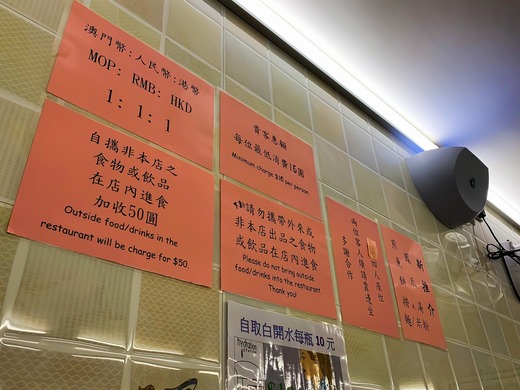 澳門幣:人民幣:港幣
MOP: RMB: HKD
1: 1: 1
自攜非本店之
食物或飲品
在店內進食
加收50圓
Outside food/drinks in the
restaurant will be charge for $50.
貴客惠顧
每位最低消費15圓
Minimum charge $15 per person
請勿攜帶外來或
非本店出品之食物
或飲品在店內進食
Please do not bring outside
food/drinks into the restaurant
Thank you!
四人座位
兩位客人煩請靠邊坐
多謝合作
新推介
鳳爪湯米粉
自取白開水每瓶10元
hydration